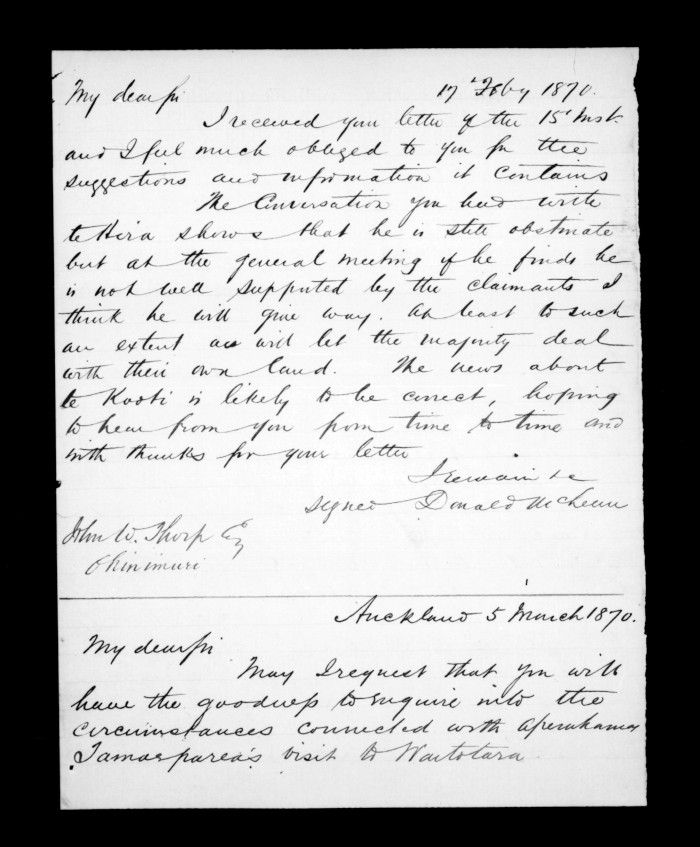 My dear Sir 17 Feby 1870.
I received your letter of the 15th Inst.
and I feel much obliged to you for the
suggestions and information it contains
The Conversation you had with
te Hira shows that he is still obstinate
but at the general meeting if he finds he
is not well supported by the claimants I
think he will give way. at least to such
an extent as will let the majority deal
with their own land. The news about
te Kooti is likely to be correct, hoping
to hear from you from time to time and
with thanks for your letter
I remain &c
signed Donald McLean
John W. Thorp Esq
Ohinimuri
Auckland 5 March 1870.
My dear Sir
May I request that you will
have the goodness to enquire into the
circumstances connected with
visit to Waitotara